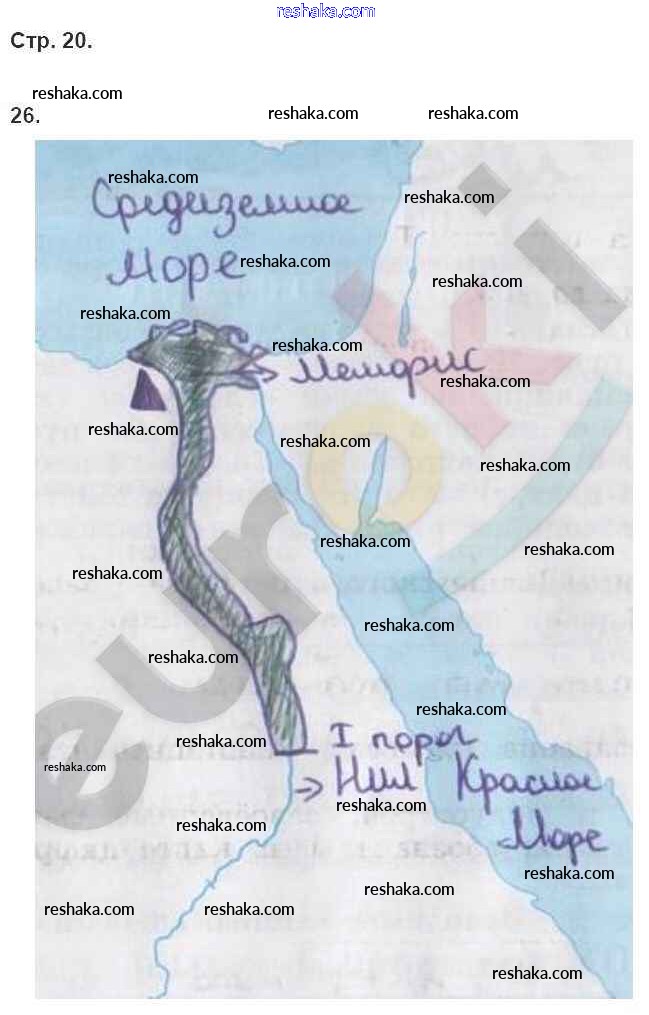 reshaka.com
Стр. 20.
reshaka.com
26.
reshaka.com reshaka.com
reshaka.com
Средиземное
reshaka.com
Море
reshaka.com
reshaka.com
reshaka.com
reshaka.com
Мемфис
reshaka.com
reshaka.com
reshaka.com
reshaka.com
reshaka.com
reshaka.com
reshaka.com
reshaka.com
reshaka.com
reshaka.com
euroki
I порог
reshaka.com
reshaka.com
Нил Красное
reshaka.com
reshaka.com
Море
reshaka.com
reshaka.com
reshaka.com reshaka.com
reshaka.com